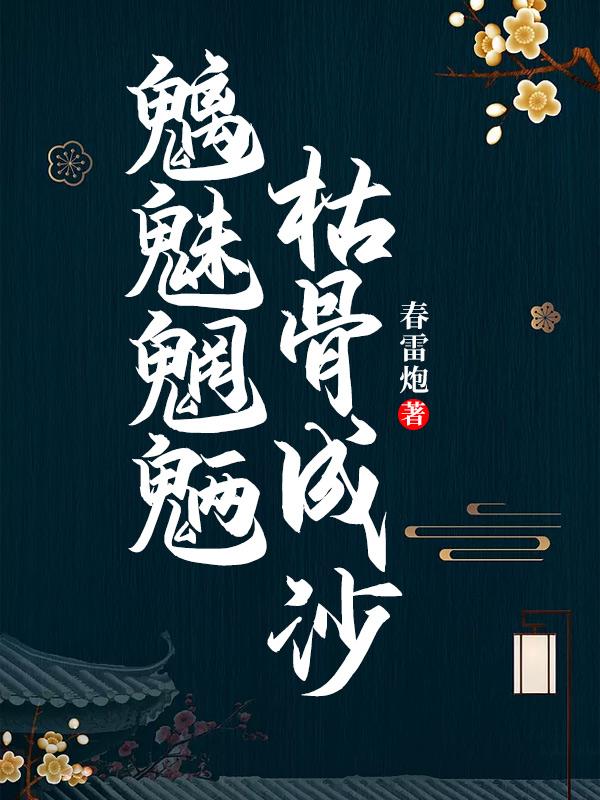 魑魅魍魉
枯骨成沙
春雷炮著